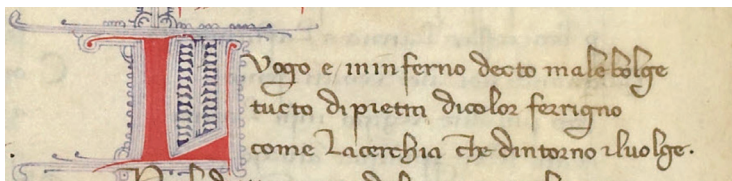 Luogo e / in inferno decto malebolge
tucto di pietra dicolor ferrigno
come lacerchia che dintorno iluolge.